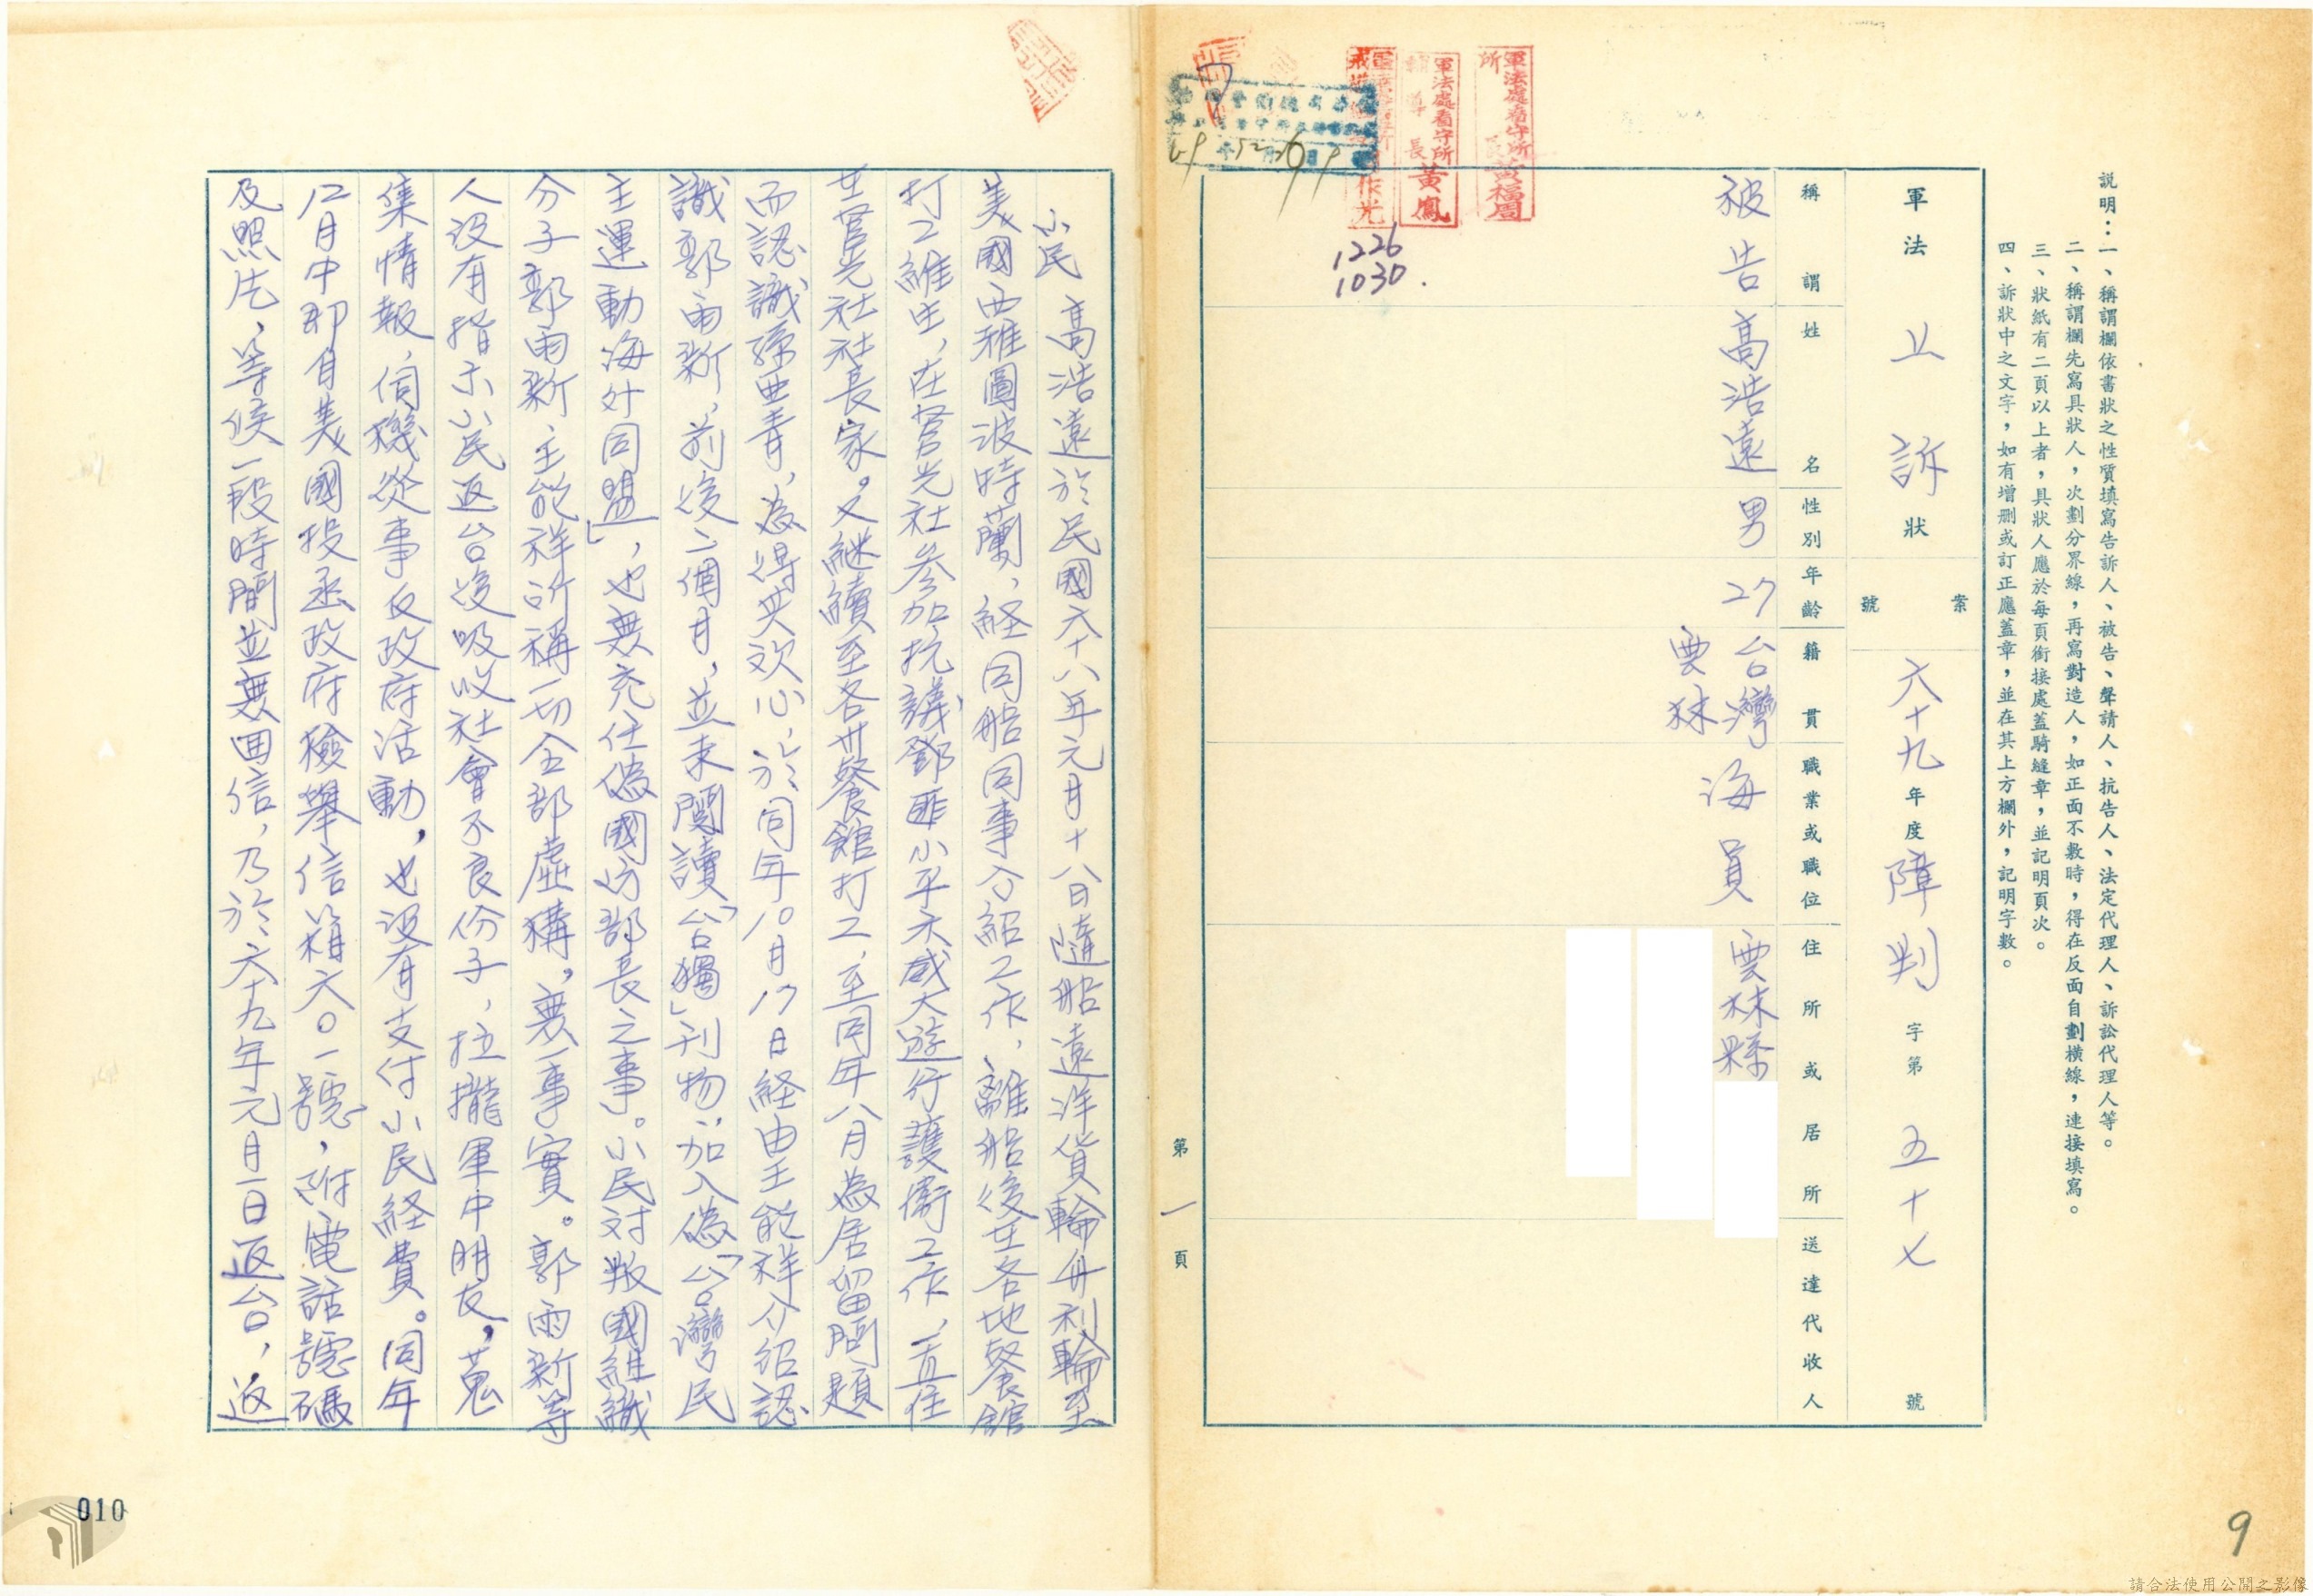 說明：一、稱謂欄依書狀之性質填寫告訴人、被告、聲請人、抗告人、法定代理人、訴訟代理人等。
二、稱謂欄先寫具狀人，次劃分界線，再寫對造人，如正面不敷時，得在反面自劃橫線，連接填寫。
三、狀紙有二頁以上者，具狀人應於每頁銜接處蓋騎縫章，並記明頁次。
四、訴狀中之文字，如有增刪或訂正應蓋章，並在其上方欄外，記明字數。
軍法 上訴 狀
案號 六十九年度障判字第五十七號
稱謂 姓名 性別 年齡 籍貫 職業或職位 住所或居所 送達代收人
被告 高浩遠 男 27 台灣雲林 海員 雲林縣
軍法處看守所 黃福周
軍法處看守所 輔導長 黃鳳
1226
1030.
第一頁
小民 高浩遠於民國六十八年元月十八日隨船遠洋貨輪舟利輪至
美國西雅圖波特蘭，経同船同事介紹工作，離船後在各地餐館
打工維生，在營光社參加抗議鄧匪小平禾威大遊行護衛工作，一直住
在營光社社長家。又継續至各卅餐館打工，至同年八月為居留問題
而認識孫亜青，為得其欢心，於同年10月17日経由王能祥介紹認
識郭雨新，前後二個月，並未閱讀「台獨」刊物，加入偽「台灣民
主運動海外同盟」，也無充任偽國防部長之事。小民対叛國組織
分子郭雨新，王能祥所稱一切全部虛構，無一事實。郭雨新等
人没有指示小民返台後吸收社會不良份子，拉攏軍中朋友，蒐
集情報，伺機從事反政府活動，也没有支付小民経費。同年
12月中即自美國投函政府檢舉信箱六〇一號，附電話號碼
及照片，等候一段時間並無回信，乃於六十九年元月一日返台，返
010
9
請合法使用公開之影像